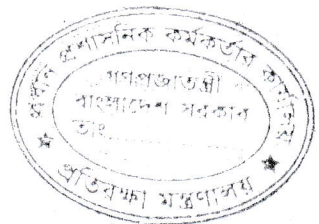 প্রধান প্রশাসনিক কর্মকর্তার কার্যালয়
গণপ্রজাতন্ত্রী
বাংলাদেশ সরকার
তাং
প্রতিরক্ষা মন্ত্রণালয়